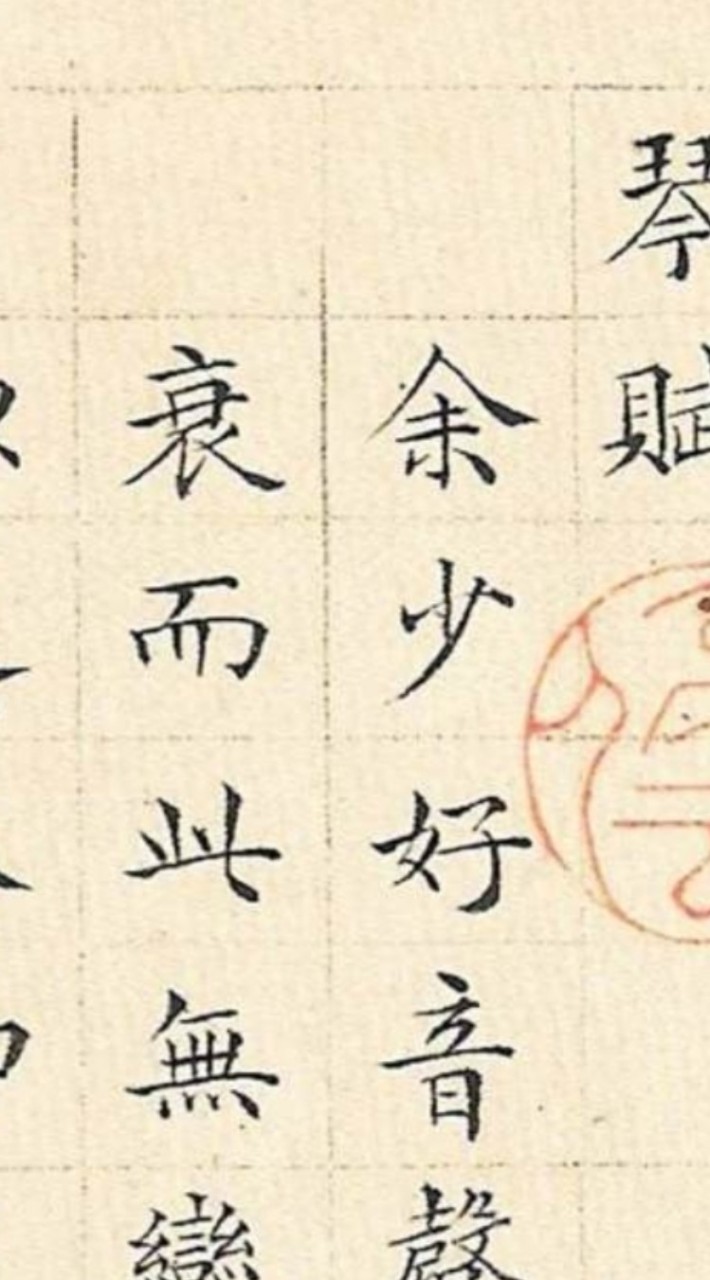 琴賦
余少好音聲
衰而此無變